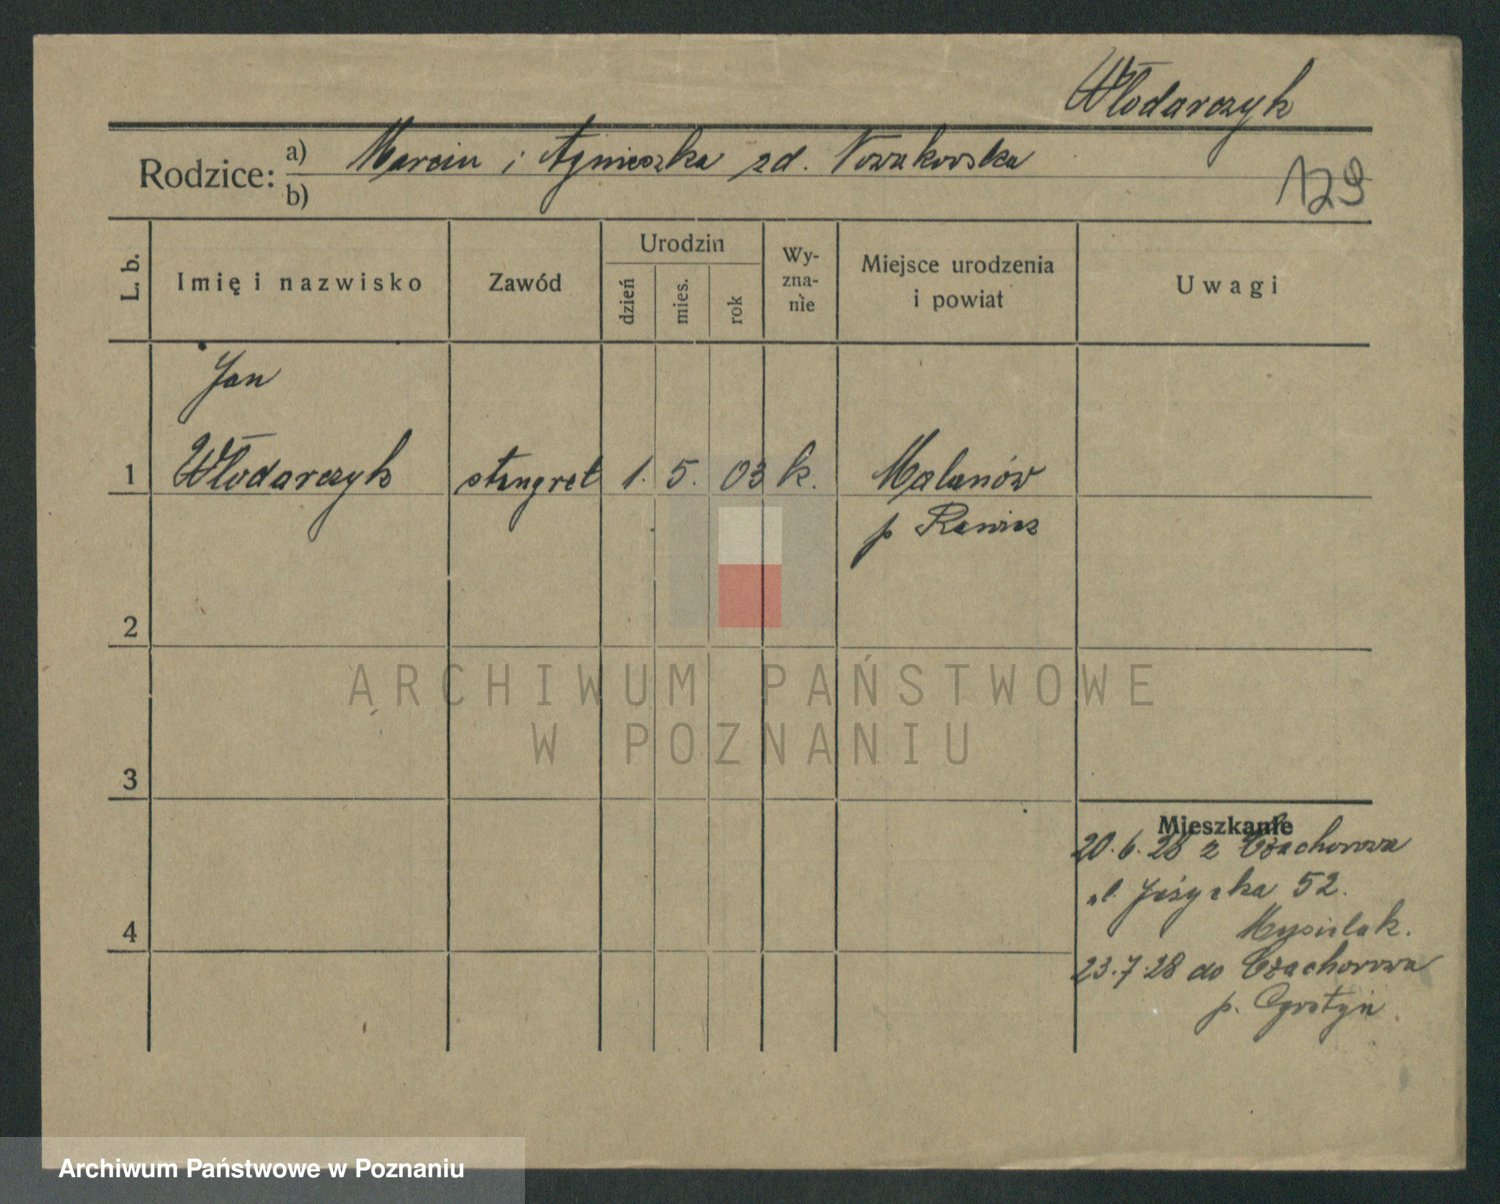 Włodarczyk
Rodzice: a) Marcin i Agnieszka zd. Nowakowska
b)
129
L. b.
Imię i nazwisko
Zawód
Urodzin
dzień
mies.
rok
Wy-
zna-
nie
Miejsce urodzenia
i powiat
Uwagi
Jan
1 Włodarczyk stangret 1. 5. 03 k. Malanów
p Rawicz
2
ARCHIWUM PAŃSTWOWE
W POZNANIU
3
Mieszkanie
20.6.28 z Czachorowa
ul. Jeżycka 52.
4
23.7.28 do Czachorowa
p. Gostyń
Archiwum Państwowe w Poznaniu